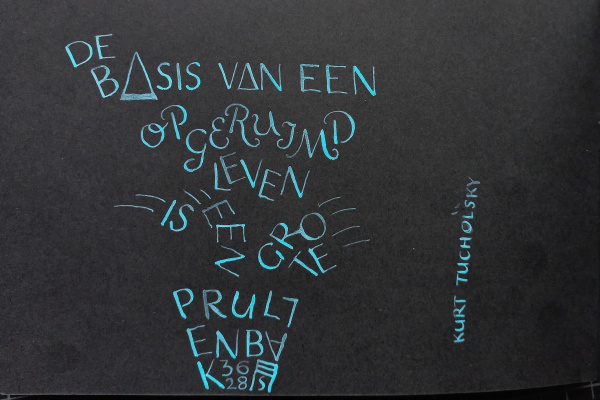 DE
BASIS VAN EEN
OPGERUIMD
LEVEN
IS EEN GROTE
PRULL
ENBA
K 36
28
KURT TUCHOLSKY